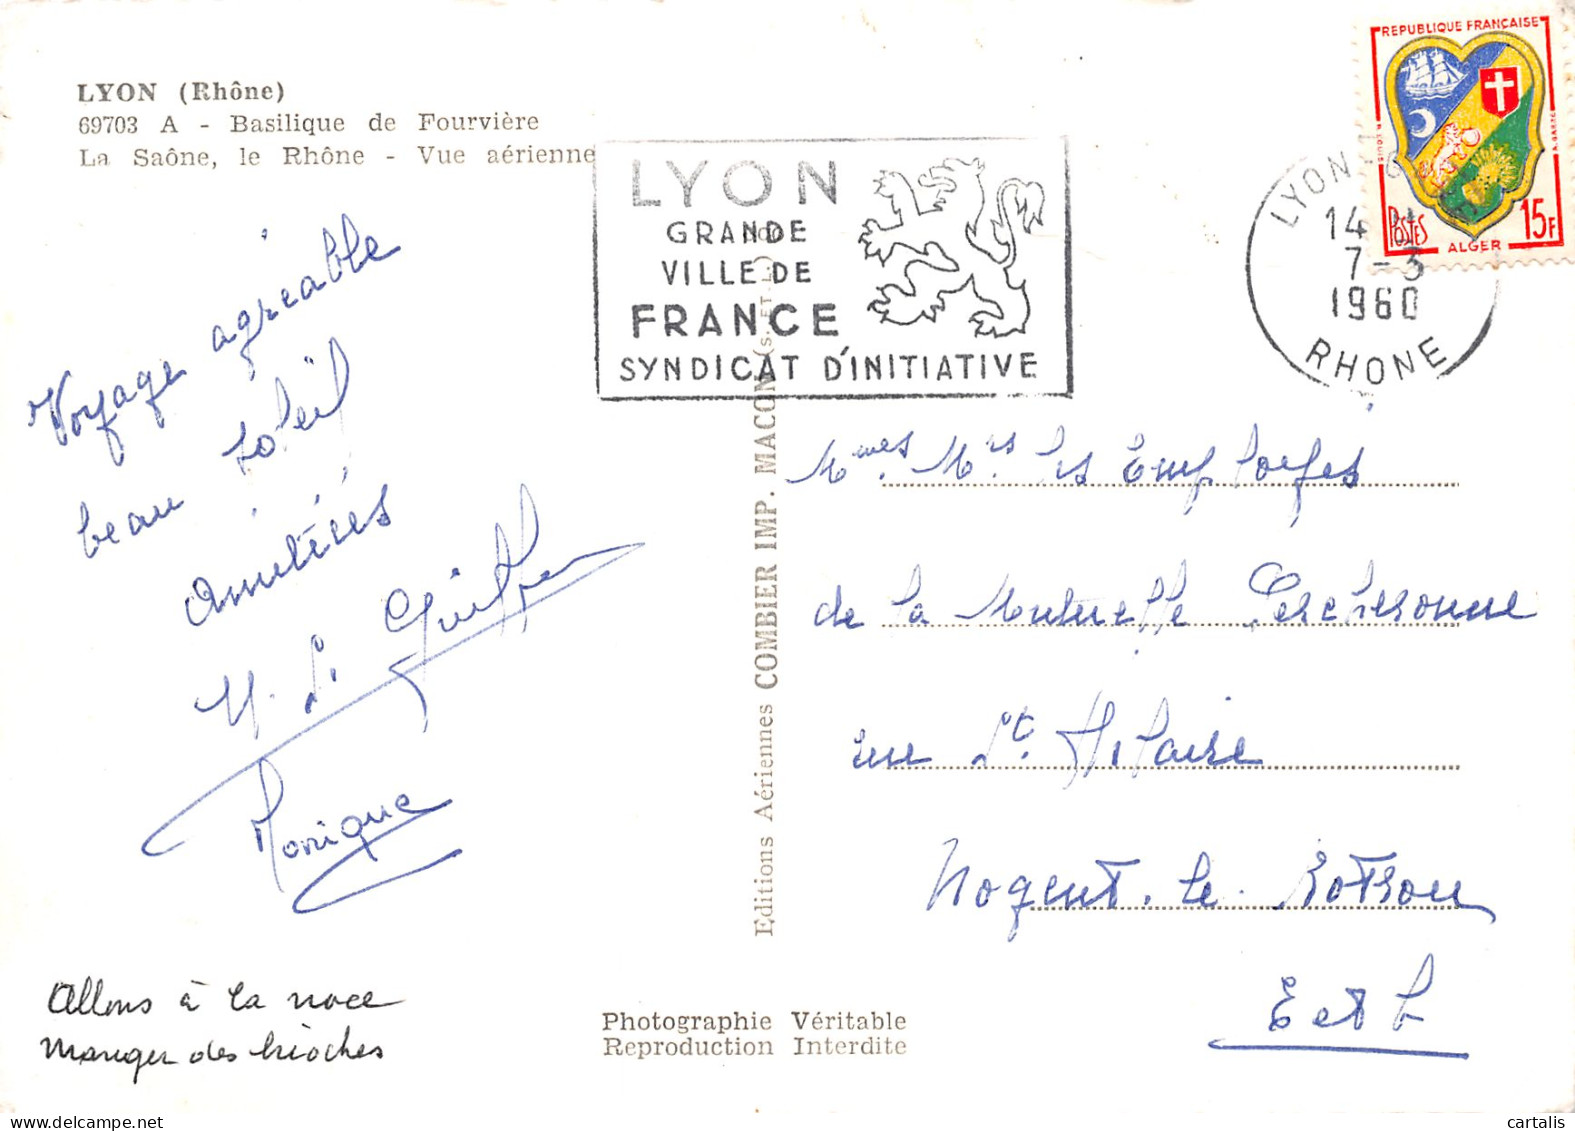 LYON (Rhône)
69703 A - Basilique de Fourvière
La Saône, le Rhône - Vue aérienne
Voyage agréable
beau soleil
Amitiés
Monique
Allons à la noce
Manger des brioches
LYON
GRANDE
VILLE DE
FRANCE
SYNDICAT D'INITIATIVE
Editions Aériennes COMBIER IMP. MACON (S. ET L.)
Photographie Véritable
Reproduction Interdite
REPUBLIQUE FRANÇAISE
POSTES
ALGER
15F
LYON
14
7-3
1960
RHONE
Mmes Mrs les Employés
de la Mutuelle Percheronne
rue St. Hilaire
Nogent-le-Rotrou
E et L
cartalis